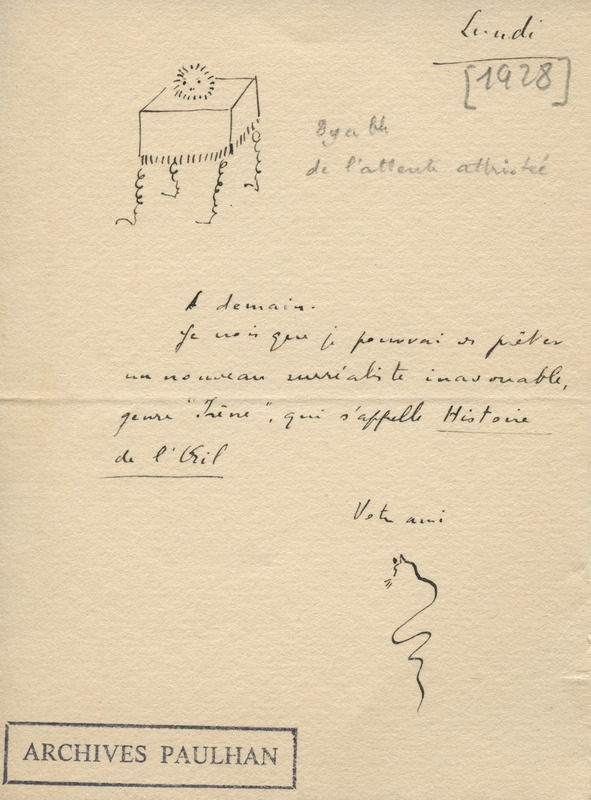 Lundi
[1928]
de l'attente attristée
A demain.
Je crois que je pourrai vs prêter
un nouveau surréaliste inavouable,
genre "Irène", qui s'appelle Histoire
de l'Œil
Votre ami
ARCHIVES PAULHAN